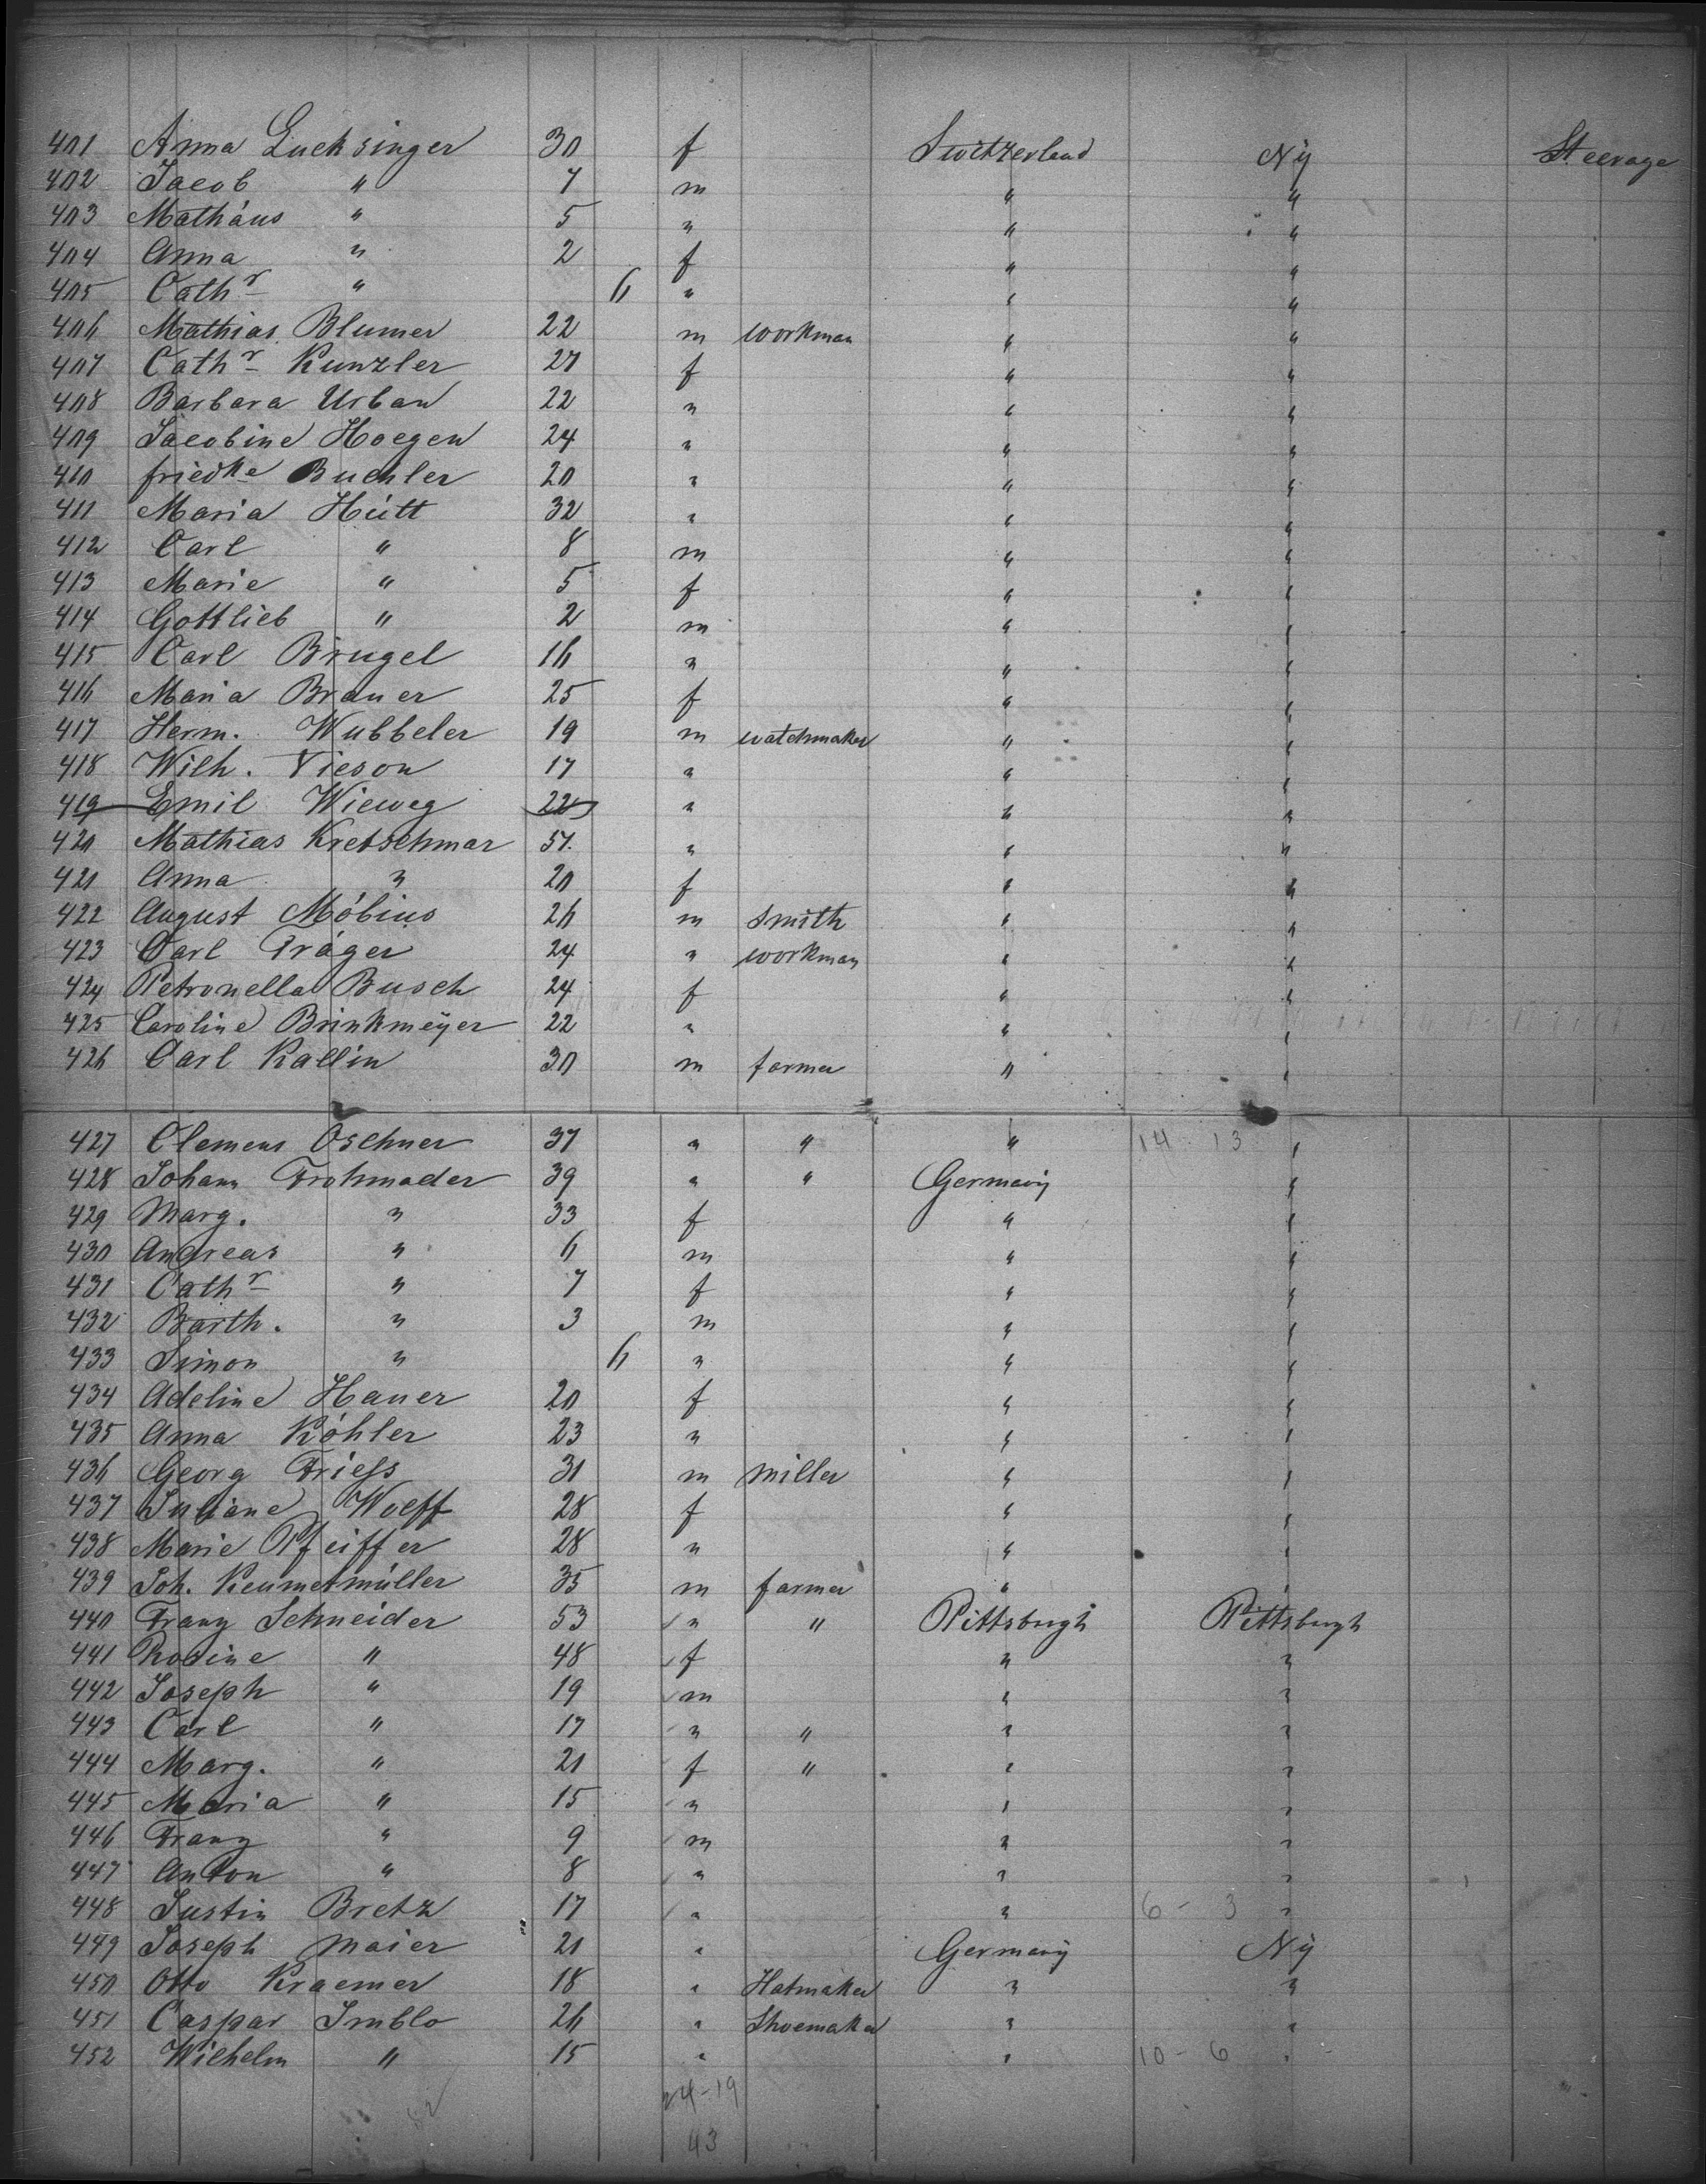 401 Anna Lucksinger 30 f Switzerland Ny Steerage
402 Jacob " 7 m " "
403 Mathäus " 5 " " "
404 Anna " 2 f " "
405 Cathr " 6 " " "
406 Mathias Blumer 22 m workman " "
407 Cathr Kunzler 27 f " "
408 Barbara Urban 22 " " "
409 Jacobine Hoegen 24 " " "
410 friedke Buchler 20 " " "
411 Maria Hütt 32 " " "
412 Carl " 8 m " "
413 Marie " 5 f " "
414 Gottlieb " 2 m " "
415 Carl Brugel 16 " " "
416 Maria Brauer 25 f " "
417 Herm. Wubbeler 19 m watchmaker " "
418 Wilh. Vieson 17 " " "
419 Emil Wieweg 22 " " "
420 Mathias Kretschmar 57. " " "
421 Anna " 20 f " "
422 August Möbius 26 m smith " "
423 Carl Träger 24 " workman " "
424 Petronella Busch 24 f " "
425 Caroline Brinkmeÿer 22 " " "
426 Carl Kallin 30 m farmer " "
427 Clemens Oschner 37 " " " 14 - 13 "
428 Johann Frohmader 39 " " Germany "
429 Marg. " 33 f " "
430 Andreas " 6 m " "
431 Cathr " 7 f " "
432 Barth. " 3 m " "
433 Simon " 6 " " "
434 Adeline Hauer 20 f " "
435 Anna Köhler 23 " " "
436 Georg Friess 31 m miller " "
437 Juliane Wolff 28 f " "
438 Marie Pfeiffer 28 " " "
439 Joh. 35 m farmer " "
440 Franz Schneider 53 " " Pittsburgh Pittsburgh
441 Rosine " 48 f " "
442 Joseph " 19 m " "
443 Carl " 17 " " " "
444 Marg. " 21 f " " "
445 Maria " 15 " " "
446 Franz " 9 m " "
447 Anton " 8 " " "
448 Justin Bretz 17 " " 6 - 3 "
449 Joseph Maier 21 " Germany Ny
450 Otto Kraemer 18 " Hatmaker " "
451 Caspar Imblo 26 " Shoemaker " "
452 Wilhelm " 15 " " 10 - 6 "
24-19
43